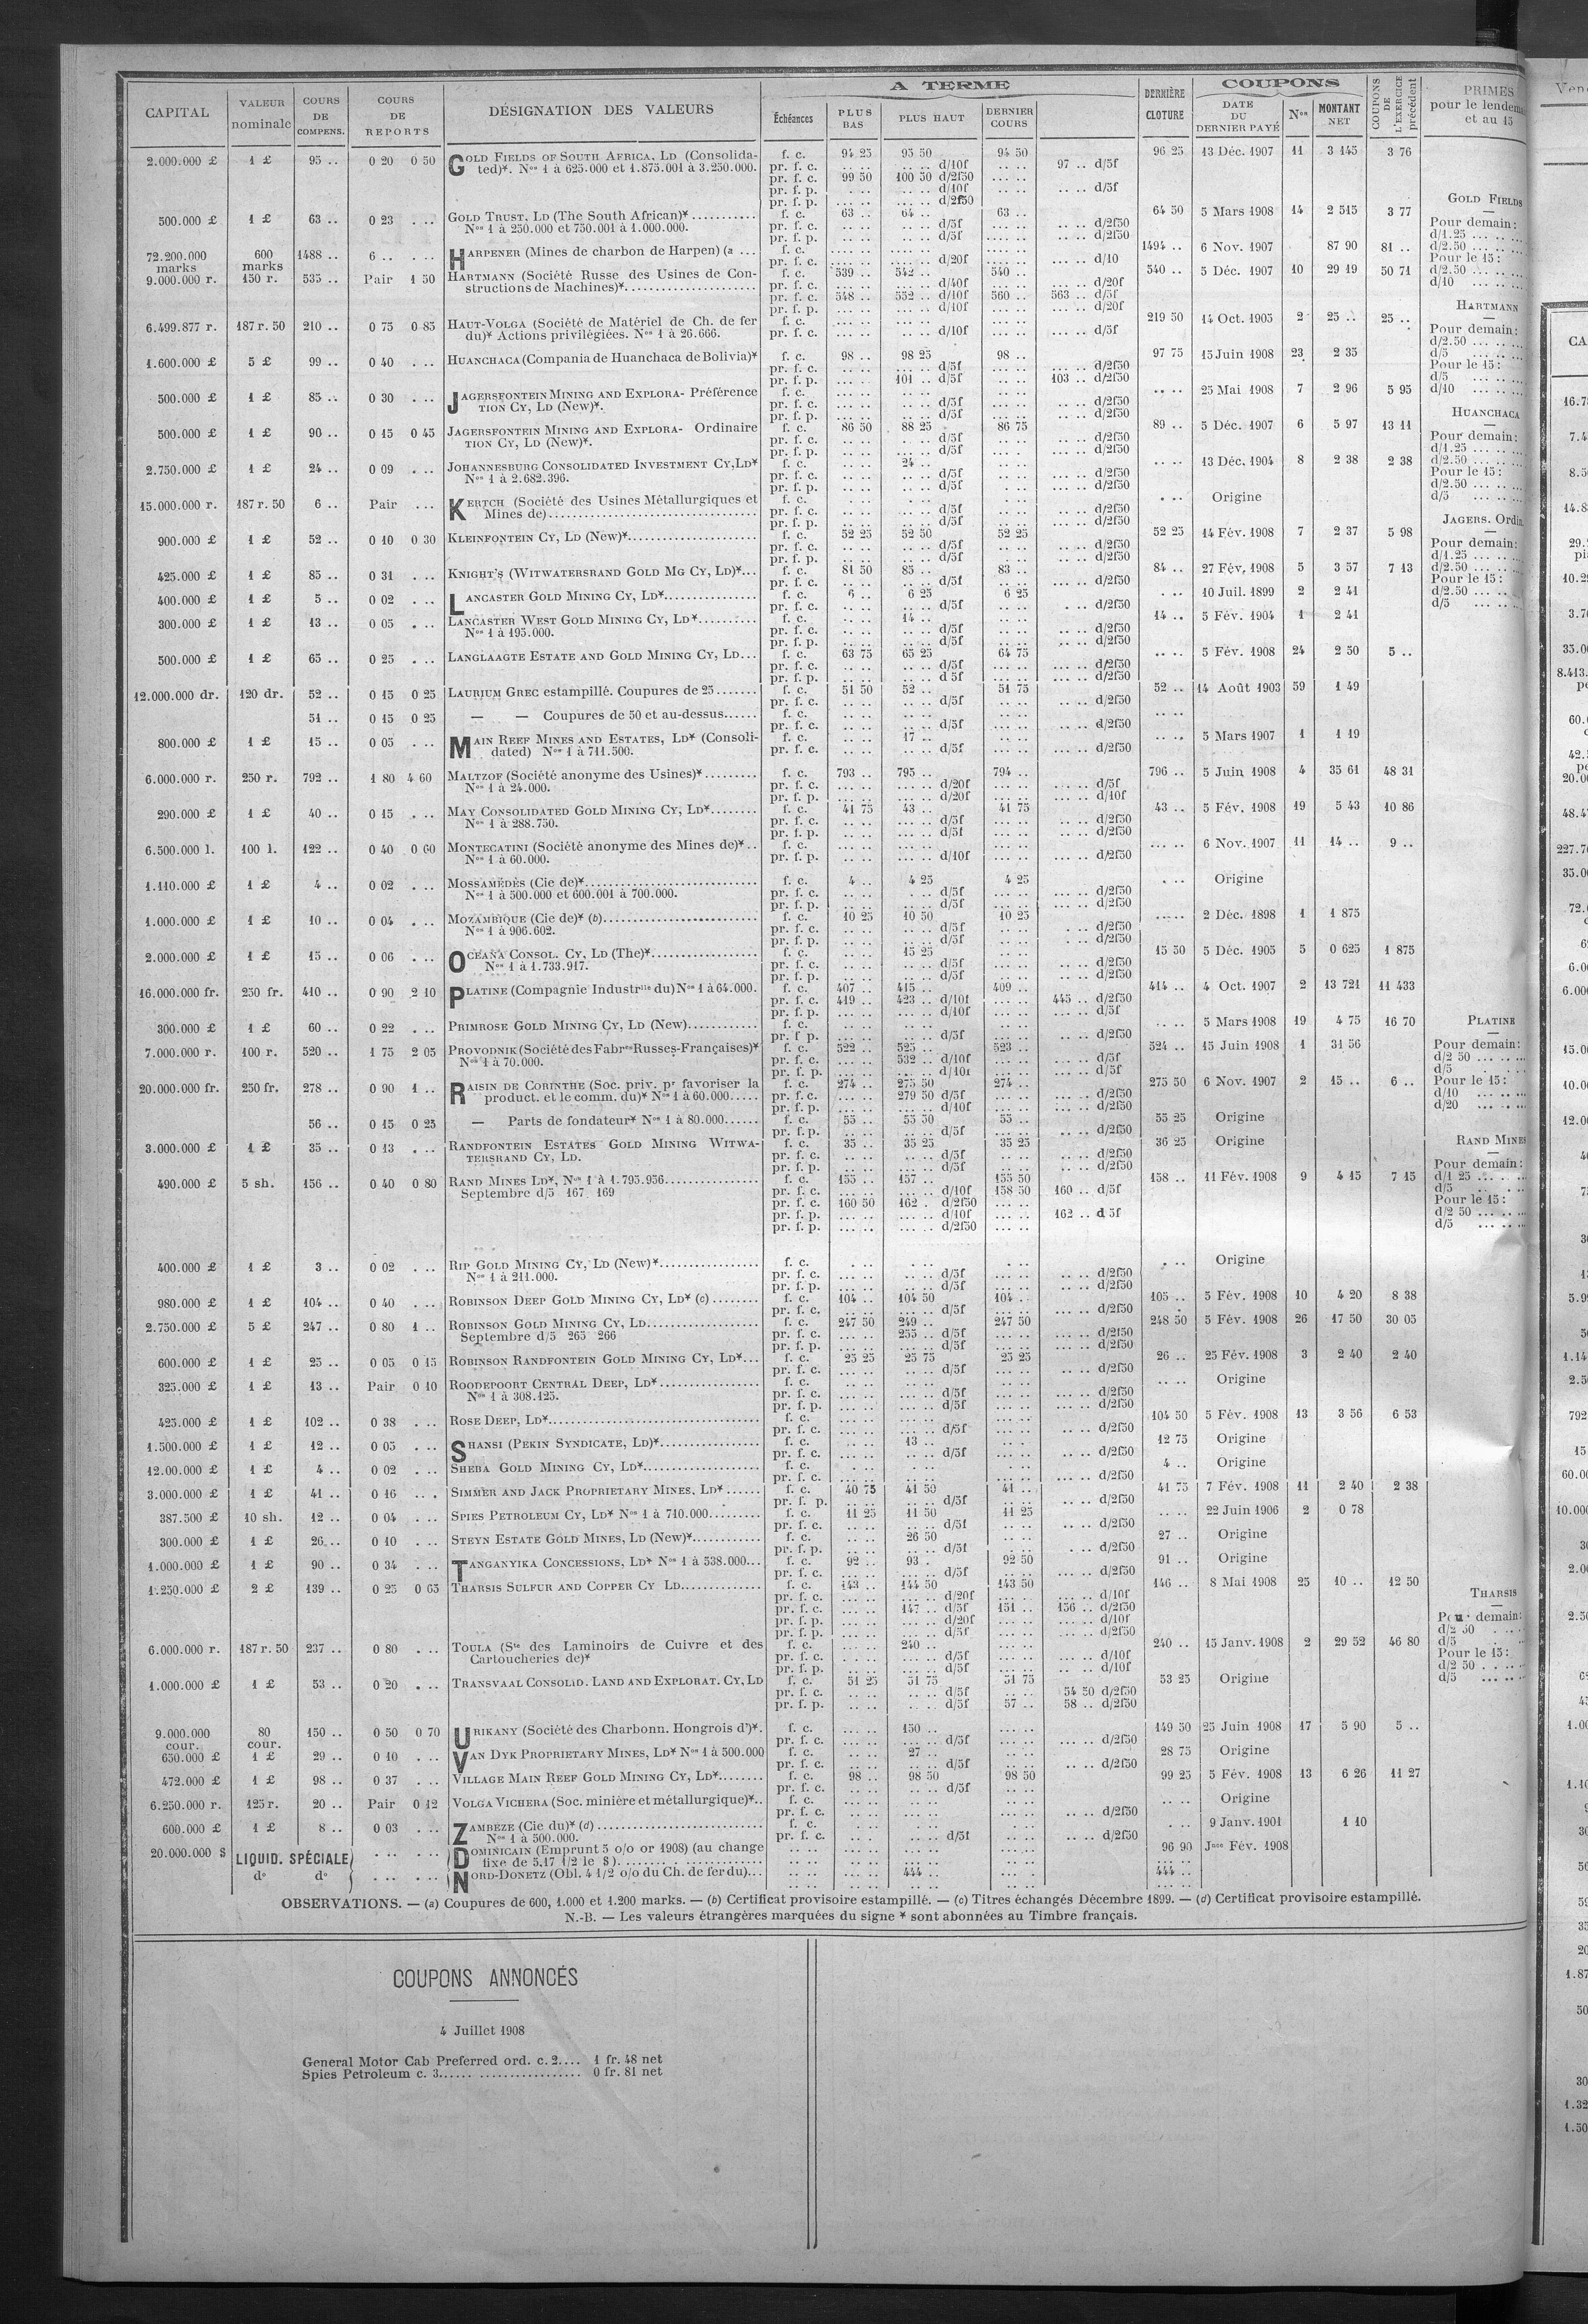 A TERME
COUPONS
CAPITAL VALEUR nominale COURS DE COMPENS. COURS DE REPORTS DÉSIGNATION DES VALEURS Échéances PLUS BAS PLUS HAUT DERNIER COURS DERNIÈRE CLOTURE DATE DU DERNIER PAYÉ Nos MONTANT NET COUPONS DE L'EXERCICE précédent PRIMES pour le lendem et au 15
2.000.000 £ 1 £ 95 .. 0 20 0 50 GOLD FIELDS OF SOUTH AFRICA, LD (Consolida- f. c. 94 25 95 50 94 50 96 25 13 Déc. 1907 11 3 145 3 76
ted)*. Nos 1 à 625.000 et 1.875.001 à 3.250.000. pr. f. c. .. .. .. .. d/10f .. .. 97 .. d/5f
pr. f. c. 99 50 100 50 d/2f50 ... ..
pr. f. p. . .. .. .. d/10f .. .. .. .. d/5f
pr. f. p. ... .. .. .. d/2f50
GOLD FIELDS
500.000 £ 1 £ 63 .. 0 23 . .. GOLD TRUST, LD (The South African)* f. c. 63 .. 64 .. 63 .. 64 50 5 Mars 1908 14 2 515 3 77
Nos 1 à 250.000 et 750.001 à 1.000.000. pr. f. c. .. .. .. .. d/5f .. .. .. .. d/2f50 Pour demain:
pr. f. p. .. .. .. .. d/5f .. .. .. .. d/2f50 d/1.25
72.200.000 marks 600 marks 1488 .. 6 .. . .. HARPENER (Mines de charbon de Harpen) (a ... f. c. 1494 .. 6 Nov. 1907 87 90 81 .. d/2.50
pr. f. c. .... .. .... .. d/20f .... .. ... .. d/10 Pour le 15:
9.000.000 r. 150 r. 535 .. Pair 1 50 HARTMANN (Société Russe des Usines de Con- f. c. 539 .. 542 .. 540 .. 540 .. 5 Déc. 1907 10 29 19 50 71 d/2.50
structions de Machines)* pr. f. c. ... .. ... .. d/40f ... .. ... .. d/20f d/10
pr. f. c. 548 .. 552 .. d/10f 560 .. 563 .. d/5f
pr. f. p. ... .. ... .. d/10f ... .. ... .. d/20f HARTMANN
6.499.877 r. 187 r. 50 210 .. 0 75 0 85 HAUT-VOLGA (Société de Matériel de Ch. de fer f. c. 219 50 14 Oct. 1905 2 25 .. 25 ..
du)* Actions privilégiées. Nos 1 à 26.666. pr. f. c. ... .. ... .. d/10f ... .. ... .. d/5f Pour demain:
d/2.50
1.600.000 £ 5 £ 99 .. 0 40 . .. HUANCHACA (Compania de Huanchaca de Bolivia)* f. c. 98 .. 98 25 98 .. 97 75 15 Juin 1908 23 2 35 d/5
pr. f. c. ... .. ... .. d/5f .. .. ... .. d/2f50 Pour le 15:
pr. f. p. ... .. 101 .. d/5f .. .. 103 .. d/2f50 d/5
500.000 £ 1 £ 85 .. 0 30 . .. JAGERSFONTEIN MINING AND EXPLORA- Préférence f. c. .. .. 25 Mai 1908 7 2 96 5 95 d/10
TION CY, LD (New)*. pr. f. c. ... .. ... .. d/5f ... .. ... .. d/2f50
pr. f. p. ... .. ... .. d/5f ... .. ... .. d/2f50 HUANCHACA
500.000 £ 1 £ 90 .. 0 15 0 45 JAGERSFONTEIN MINING AND EXPLORA- Ordinaire f. c. 86 50 88 25 86 75 89 .. 5 Déc. 1907 6 5 97 13 11
TION CY, LD (New)*. pr. f. c. .. .. .. .. d/5f .. .. ... .. d/2f50 Pour demain:
pr. f. p. .. .. .. .. d/5f .. .. ... .. d/2f50 d/1.25
2.750.000 £ 1 £ 24 .. 0 09 . .. JOHANNESBURG CONSOLIDATED INVESTMENT CY, LD* f. c. .. .. 24 .. .. .. 13 Déc. 1904 8 2 38 2 38 d/2.50
Nos 1 à 2.682.396. pr. f. c. .. .. .. .. d/5f .. .. ... .. d/2f50 Pour le 15:
pr. f. p. .. .. .. .. d/5f .. .. ... .. d/2f50 d/2.50
15.000.000 r. 187 r. 50 6 .. Pair . .. KERTCH (Société des Usines Métallurgiques et f. c. . .. Origine d/5
Mines de) pr. f. c. .. .. .. .. d/5f .. .. ... .. d/2f50
pr. f. p. .. .. .. .. d/5f .. .. ... .. d/2f50 JAGERS. Ordin
900.000 £ 1 £ 52 .. 0 10 0 30 KLEINFONTEIN CY, LD (New)* f. c. 52 25 52 50 52 25 52 25 14 Fév. 1908 7 2 37 5 98
pr. f. c. .. .. .. .. d/5f .. .. ... .. d/2f50 Pour demain:
pr. f. p. .. .. .. .. d/5f .. .. ... .. d/2f50 d/1.25
425.000 £ 1 £ 85 .. 0 31 . .. KNIGHT'S (WITWATERSRAND GOLD MG CY, LD)* f. c. 81 50 85 .. 83 .. 84 .. 27 Fév. 1908 5 3 57 7 13 d/2.50
pr. f. c. .. .. .. .. d/5f .. .. ... .. d/2f50 Pour le 15:
400.000 £ 1 £ 5 .. 0 02 . .. LANCASTER GOLD MINING CY, LD* f. c. 6 .. 6 25 6 25 . .. 10 Juil. 1899 2 2 41 d/2.50
pr. f. c. .. .. .. .. d/5f .. .. . .. d/2f50 d/5
300.000 £ 1 £ 13 .. 0 05 . .. LANCASTER WEST GOLD MINING CY, LD* f. c. .. .. 14 .. .. .. 14 .. 5 Fév. 1904 1 2 41
Nos 1 à 495.000. pr. f. c. .. .. .. .. d/5f .. .. .. .. d/2f50
pr. f. p. .. .. .. .. d/5f .. .. .. .. d/2f50
500.000 £ 1 £ 65 .. 0 25 . .. LANGLAAGTE ESTATE AND GOLD MINING CY, LD... f. c. 63 75 65 25 64 75 .. .. 5 Fév. 1908 24 2 50 5 ..
pr. f. c. .. .. .. .. d/5f .. .. ... .. d/2f50
pr. f. p. .. .. .. .. d 5f .. .. ... .. d/2f50
12.000.000 dr. 120 dr. 52 .. 0 15 0 25 LAURIUM GREC estampillé. Coupures de 25 f. c. 51 50 52 .. 51 75 52 .. 14 Août 1903 59 1 49
pr. f. c. .. .. .. .. d/5f .. .. ... .. d/2f50
51 .. 0 15 0 25 — — Coupures de 50 et au-dessus f. c. .. .. .. .. .. .. .. ..
pr. f. c. .. .. .. .. d/5f .. .. ... .. d/2f50
800.000 £ 1 £ 15 .. 0 05 . .. MAIN REEF MINES AND ESTATES, LD* (Consoli- f. c. .. .. 17 .. .. .. 5 Mars 1907 1 1 19
dated) Nos 1 à 711.500. pr. f. c. .. .. .. .. d/5f .. .. ... .. d/2f50
6.000.000 r. 250 r. 792 .. 1 80 4 60 MALTZOF (Société anonyme des Usines)* f. c. 793 .. 795 .. 794 .. 796 .. 5 Juin 1908 4 35 61 48 31
Nos 1 à 24.000. pr. f. c. ... .. ... .. d/20f ... .. ... .. d/5f
pr. f. p. ... .. ... .. d/20f ... .. ... .. d/10f
290.000 £ 1 £ 40 .. 0 15 . .. MAY CONSOLIDATED GOLD MINING CY, LD* f. c. 41 75 43 .. 41 75 43 .. 5 Fév. 1908 19 5 43 10 86
Nos 1 à 288.750. pr. f. c. .. .. .. .. d/5f .. .. ... .. d/2f50
pr. f. p. .. .. .. .. d/5f .. .. ... .. d/2f50
6.500.000 l. 100 l. 122 .. 0 40 0 60 MONTECATINI (Société anonyme des Mines de)* f. c. ... .. 6 Nov. 1907 11 14 .. 9 ..
Nos 1 à 60.000. pr. f. p. ... .. ... .. d/10f ... .. ... .. d/2f50
1.110.000 £ 1 £ 4 .. 0 02 . .. MOSSAMÉDÈS (Cie de)* f. c. 4 .. 4 25 4 25 . .. Origine
Nos 1 à 500.000 et 600.001 à 700.000. pr. f. c. .. .. .. .. d/5f .. .. ... .. d/2f50
pr. f. p. .. .. .. .. d/5f .. .. ... .. d/2f50
1.000.000 £ 1 £ 10 .. 0 04 . .. MOZAMBIQUE (Cie de)* (b) f. c. 10 25 10 50 10 25 .. .. 2 Déc. 1898 1 1 875
Nos 1 à 906.602. pr. f. c. .. .. .. .. d/5f .. .. . .. d/2f50
pr. f. p. .. .. .. .. d/5f .. .. . .. d/2f50
2.000.000 £ 1 £ 15 .. 0 06 . .. OCEAÑA CONSOL. CY, LD (The)* f. c. .. .. 15 25 .. .. 15 50 5 Déc. 1905 5 0 625 1 875
Nos 1 à 1.733.917. pr. f. c. .. .. .. .. d/5f .. .. .. .. d/2f50
pr. f. p. .. .. .. .. d/5f .. .. .. .. d/2f50
16.000.000 fr. 250 fr. 410 .. 0 90 2 10 PLATINE (Compagnie Industrlle du) Nos 1 à 64.000. f. c. 407 .. 415 .. 409 .. 414 .. 4 Oct. 1907 2 13 721 11 433
pr. f. c. 419 .. 423 .. d/10f ... .. 445 .. d/2f50
pr. f. p. ... .. ... .. d/10f ... .. ... .. d/5f
300.000 £ 1 £ 60 .. 0 22 . .. PRIMROSE GOLD MINING CY, LD (New) f. c. .. .. 5 Mars 1908 19 4 75 16 70 PLATINE
pr. f p. .. .. .. .. d/5f .. .. ... .. d/2f50
7.000.000 r. 100 r. 520 .. 1 75 2 05 PROVODNIK (Société des Fabres Russes-Françaises)* f. c. 522 .. 525 .. 523 .. 524 .. 15 Juin 1908 1 31 56 Pour demain:
Nos 1 à 70.000. pr. f. c. ... .. 532 .. d/10f ... .. ... .. d/5f d/2 50
pr. f. p. ... .. ... .. d/10f ... .. ... .. d/5f d/5
20.000.000 fr. 250 fr. 278 .. 0 90 1 .. RAISIN DE CORINTHE (Soc. priv. pr favoriser la f. c. 274 .. 275 50 274 .. 275 50 6 Nov. 1907 2 15 .. 6 .. Pour le 15:
product. et le comm. du)* Nos 1 à 60.000 pr. f. c. ... .. 279 50 d/5f ... .. ... .. d/2f50 d/10
pr. f. p. ... .. ... .. d/10f ... .. ... .. d/2f50 d/20
56 .. 0 15 0 25 — Parts de fondateur* Nos 1 à 80.000 f. c. 55 .. 55 50 55 .. 55 25 Origine
pr. f. p. .. .. .. .. d/5f .. .. ... .. d/2f50
3.000.000 £ 1 £ 35 .. 0 13 . .. RANDFONTEIN ESTATES GOLD MINING WITWA- f. c. 35 .. 35 25 35 25 36 25 Origine RAND MINES
TERSRAND CY, LD. pr. f. c. .. .. .. .. d/5f .. .. ... .. d/2f50
pr. f. p. .. .. .. .. d/5f .. .. ... .. d/2f50 Pour demain:
490.000 £ 5 sh. 156 .. 0 40 0 80 RAND MINES LD*, Nos 1 à 1.795.956 f. c. 155 .. 157 .. 155 50 158 .. 11 Fév. 1908 9 4 15 7 15 d/1 25
Septembre d/5 167 169 pr. f. c. ... .. ... .. d/10f 158 50 160 .. d/5f d/5
pr. f. c. 160 50 162 . d/2f50 ... .. Pour le 15:
pr. f. p. ... .. ... .. d/10f ... .. 162 .. d 5f d/2 50
pr. f. p. ... .. ... .. d/2f50 ... .. d/5
400.000 £ 1 £ 3 .. 0 02 . .. RIP GOLD MINING CY, LD (New)* f. c. . .. . .. . .. . .. Origine
Nos 1 à 211.000. pr. f. c. .. .. .. .. d/5f .. .. .. .. d/2f50
pr. f. p. .. .. .. .. d/5f .. .. .. .. d/2f50
980.000 £ 1 £ 104 .. 0 40 . .. ROBINSON DEEP GOLD MINING CY, LD* (c) f. c. 104 .. 104 50 104 .. 105 .. 5 Fév. 1908 10 4 20 8 38
pr. f. c. ... .. ... .. d/5f ... .. ... .. d/2f50
2.750.000 £ 5 £ 247 .. 0 80 1 .. ROBINSON GOLD MINING CY, LD f. c. 247 50 249 .. 247 50 248 50 5 Fév. 1908 26 17 50 30 05
Septembre d/5 265 266 pr. f. c. ... .. 255 .. d/5f ... .. ... .. d/2f50
pr. f. p. ... .. ... .. d/5f ... .. ... .. d/2f50
600.000 £ 1 £ 25 .. 0 05 0 15 ROBINSON RANDFONTEIN GOLD MINING CY, LD* f. c. 25 25 25 75 25 25 26 .. 25 Fév. 1908 3 2 40 2 40
pr. f. c. .. .. .. .. d/5f .. .. .. .. d/2f50
325.000 £ 1 £ 13 .. Pair 0 10 ROODEPOORT CENTRAL DEEP, LD* f. c. .. .. Origine
Nos 1 à 308.125. pr. f. c. .. .. .. .. d/5f .. .. ... .. d/2f50
pr. f. p. .. .. .. .. d/5f .. .. ... .. d/2f50
425.000 £ 1 £ 102 .. 0 38 . .. ROSE DEEP, LD* f. c. 104 50 5 Fév. 1908 13 3 56 6 53
pr. f. c. ... .. ... .. d/5f ... .. ... .. d/2f50
1.500.000 £ 1 £ 12 .. 0 05 . .. SHANSI (PEKIN SYNDICATE, LD)* f. c. .. .. 13 .. .. .. 12 75 Origine
pr. f. c. .. .. .. .. d/5f .. .. .. .. d/2f50
12.00.000 £ 1 £ 4 .. 0 02 . .. SHEBA GOLD MINING CY, LD* f. c. 4 .. Origine
pr. f. c. .. .. .. .. .. .. .. .. d/2f50
3.000.000 £ 1 £ 41 .. 0 16 .. . SIMMER AND JACK PROPRIETARY MINES, LD* f. c. 40 75 41 50 41 .. 41 75 7 Fév. 1908 11 2 40 2 38
pr. f. p. .. .. .. .. d/5f .. .. .. .. d/2f50
387.500 £ 10 sh. 12 .. 0 04 . .. SPIES PETROLEUM CY, LD* Nos 1 à 710.000 f. c. 11 25 11 50 11 25 .. .. 22 Juin 1906 2 0 78
pr. f. c. .. .. .. .. d/5f .. .. .. .. d/2f50
300.000 £ 1 £ 26 .. 0 10 . .. STEYN ESTATE GOLD MINES, LD (New)* f. c. .. .. 26 50 .. .. 27 .. Origine
pr. f. p. .. .. .. .. d/5f .. .. . .. d/2f50
1.000.000 £ 1 £ 90 .. 0 34 . .. TANGANYIKA CONCESSIONS, LD* Nos 1 à 538.000 f. c. 92 .. 93 . 92 50 91 .. Origine
pr. f. c. .. .. .. .. d/5f .. .. ... .. d/2f50
1.250.000 £ 2 £ 139 .. 0 25 0 65 THARSIS SULFUR AND COPPER CY LD f. c. 143 .. 144 50 143 50 146 .. 8 Mai 1908 25 10 .. 12 50 THARSIS
pr. f. c. ... .. ... .. d/20f ... .. ... .. d/10f
pr. f. c. ... .. 147 .. d/5f 151 .. 156 .. d/2f50 Pour demain:
pr. f. p. ... .. ... .. d/20f ... .. ... .. d/10f d/2 50
pr. f. p. ... .. ... .. d/5f ... .. ... .. d/2f50
6.000.000 r. 187 r. 50 237 .. 0 80 . .. TOULA (Sté des Laminoirs de Cuivre et des f. c. ... .. 240 .. 240 .. 15 Janv. 1908 2 29 52 46 80 d/5
Cartoucheries de)* pr. f. c. .. .. .. .. d/5f .. .. .. .. d/10f Pour le 15:
pr. f. p. .. .. .. .. d/5f .. .. .. .. d/10f d/2 50
1.000.000 £ 1 £ 53 .. 0 20 . .. TRANSVAAL CONSOLID. LAND AND EXPLORAT. CY, LD f. c. 51 25 51 75 51 75 53 25 Origine d/5
pr. f. c. .. .. .. .. d/5f .. .. 54 50 d/2f50
pr. f. p. .. .. .. .. d/5f 57 .. 58 .. d/2f50
9.000.000 cour. 80 cour. 150 .. 0 50 0 70 URIKANY (Société des Charbonn. Hongrois d')*. f. c. ... .. 150 .. ... .. 149 50 25 Juin 1908 17 5 90 5 ..
pr. f. c. ... .. ... .. d/5f ... .. ... .. d/2f50
650.000 £ 1 £ 29 .. 0 10 . .. VAN DYK PROPRIETARY MINES, LD* Nos 1 à 500.000 f. c. .. .. 27 .. .. .. 28 75 Origine
pr. f. c. .. .. .. .. d/5f .. .. .. .. d/2f50
472.000 £ 1 £ 98 .. 0 37 . .. VILLAGE MAIN REEF GOLD MINING CY, LD* f. c. 98 .. 98 50 98 50 99 25 5 Fév. 1908 13 6 26 11 27
pr. f. c. .. .. .. .. d/5f .. ..
6.250.000 r. 125 r. 20 .. Pair 0 12 VOLGA VICHERA (Soc. minière et métallurgique)* f. c. .. .. Origine
pr. f. c. .. .. .. .. .. .. .. .. d/2f50
600.000 £ 1 £ 8 .. 0 03 . .. ZAMBÈZE (Cie du)* (d) f. c. . .. 9 Janv. 1901 1 10
Nos 1 à 500.000. pr. f. c. .. . .. .. d/5f .. .. .. .. d/2f50
20.000.000 $ LIQUID. SPÉCIALE DOMINICAIN (Emprunt 5 o/o or 1908) (au change 96 90 Jnce Fév. 1908
fixe de 5.17 1/2 le $)
do do NORD-DONETZ (Obl. 4 1/2 o/o du Ch. de fer du) ... .. 444 .. ... .. 444 ..
OBSERVATIONS. — (a) Coupures de 600, 1.000 et 1.200 marks. — (b) Certificat provisoire estampillé. — (c) Titres échangés Décembre 1899. — (d) Certificat provisoire estampillé.
N.-B. — Les valeurs étrangères marquées du signe * sont abonnées au Timbre français.
COUPONS ANNONCÉS
4 Juillet 1908
General Motor Cab Preferred ord. c. 2.... 1 fr. 48 net
Spies Petroleum c. 3...... 0 fr. 81 net